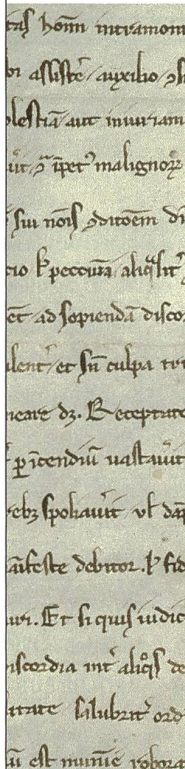 tas hom̄ intramon
assistē auxilio
lestiā aut iniuriam
ūit  ip̄et᾽ malignoꝝ
sui nōis ꝯditōem di
cio  peccūia aliq̄
et ad sopiendā disco
lent᾽ et sn̄ culpa
neare dꝫ. Receptate
ꝑ īcendiū uastau᾽it
rebꝫ spoliau᾽it ul᾽ dāp
aīfeste debitor.  fid
uri. Et si quis iudic
iscordia int᾽ aliq̄s de
itate salubrit᾽ ord
ū est munīe robora